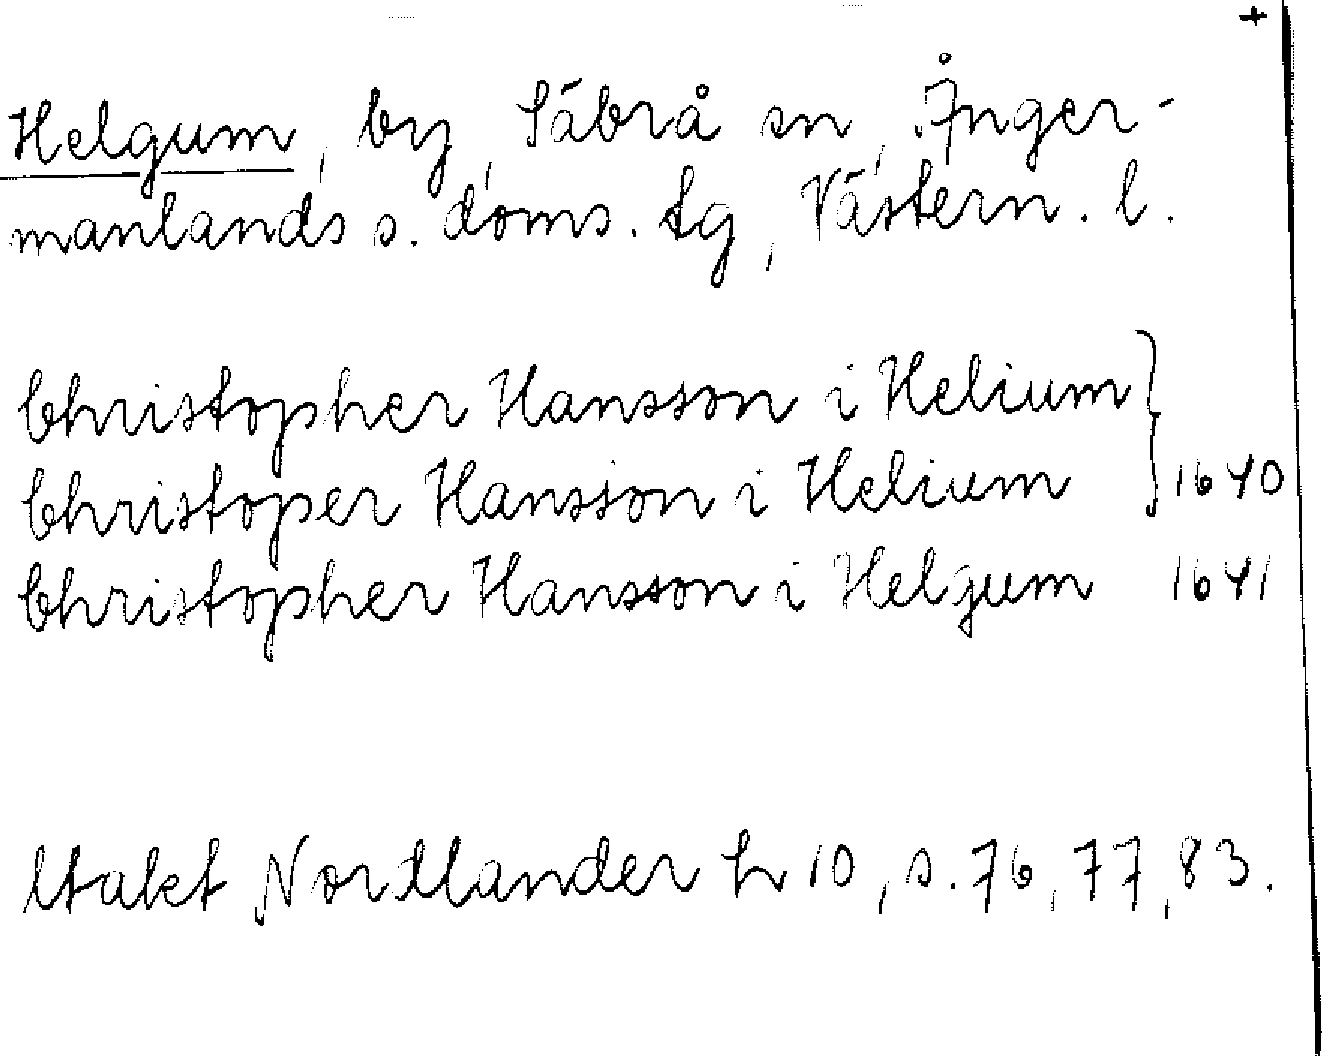 +
Helgum, by, Säbrå sn, Ånger-
manlands s. doms. tg, Västern. l.
Christopher Hansson i Helium }
Christoper Hansson i Helium } 1640
Christopher Hansson i Helgum 1641
Utakt Nordlander h 10, s. 76, 77, 83.